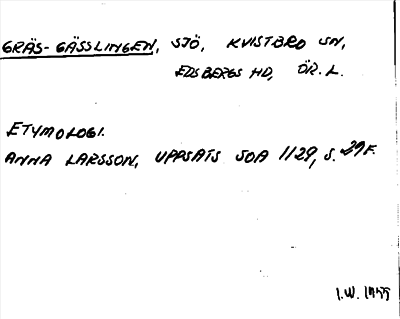 GRÄS-GÄSSLINGEN, SJÖ, KVISTBRO SN,
EDSBERGS HD, ÖR. L.
ETYMOLOGI.
ANNA LARSSON, UPPSATS SOA 1129, S. 29 F.
I.W.